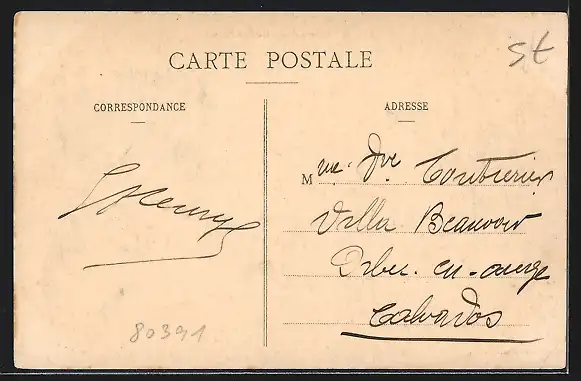 CARTE POSTALE
St
CORRESPONDANCE
ADRESSE
Mme. Dve
Villa Beauvoir
Orbec. en-auge
Calvados
80391